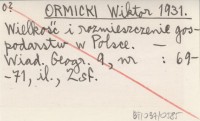 07 ORMICKI Wiktor 1931.
Wielkość i rozmieszczenie gos-
podarstw w Polsce. —
Wiad. Geogr. 9, nr : 69-
-71, il., Zsf.